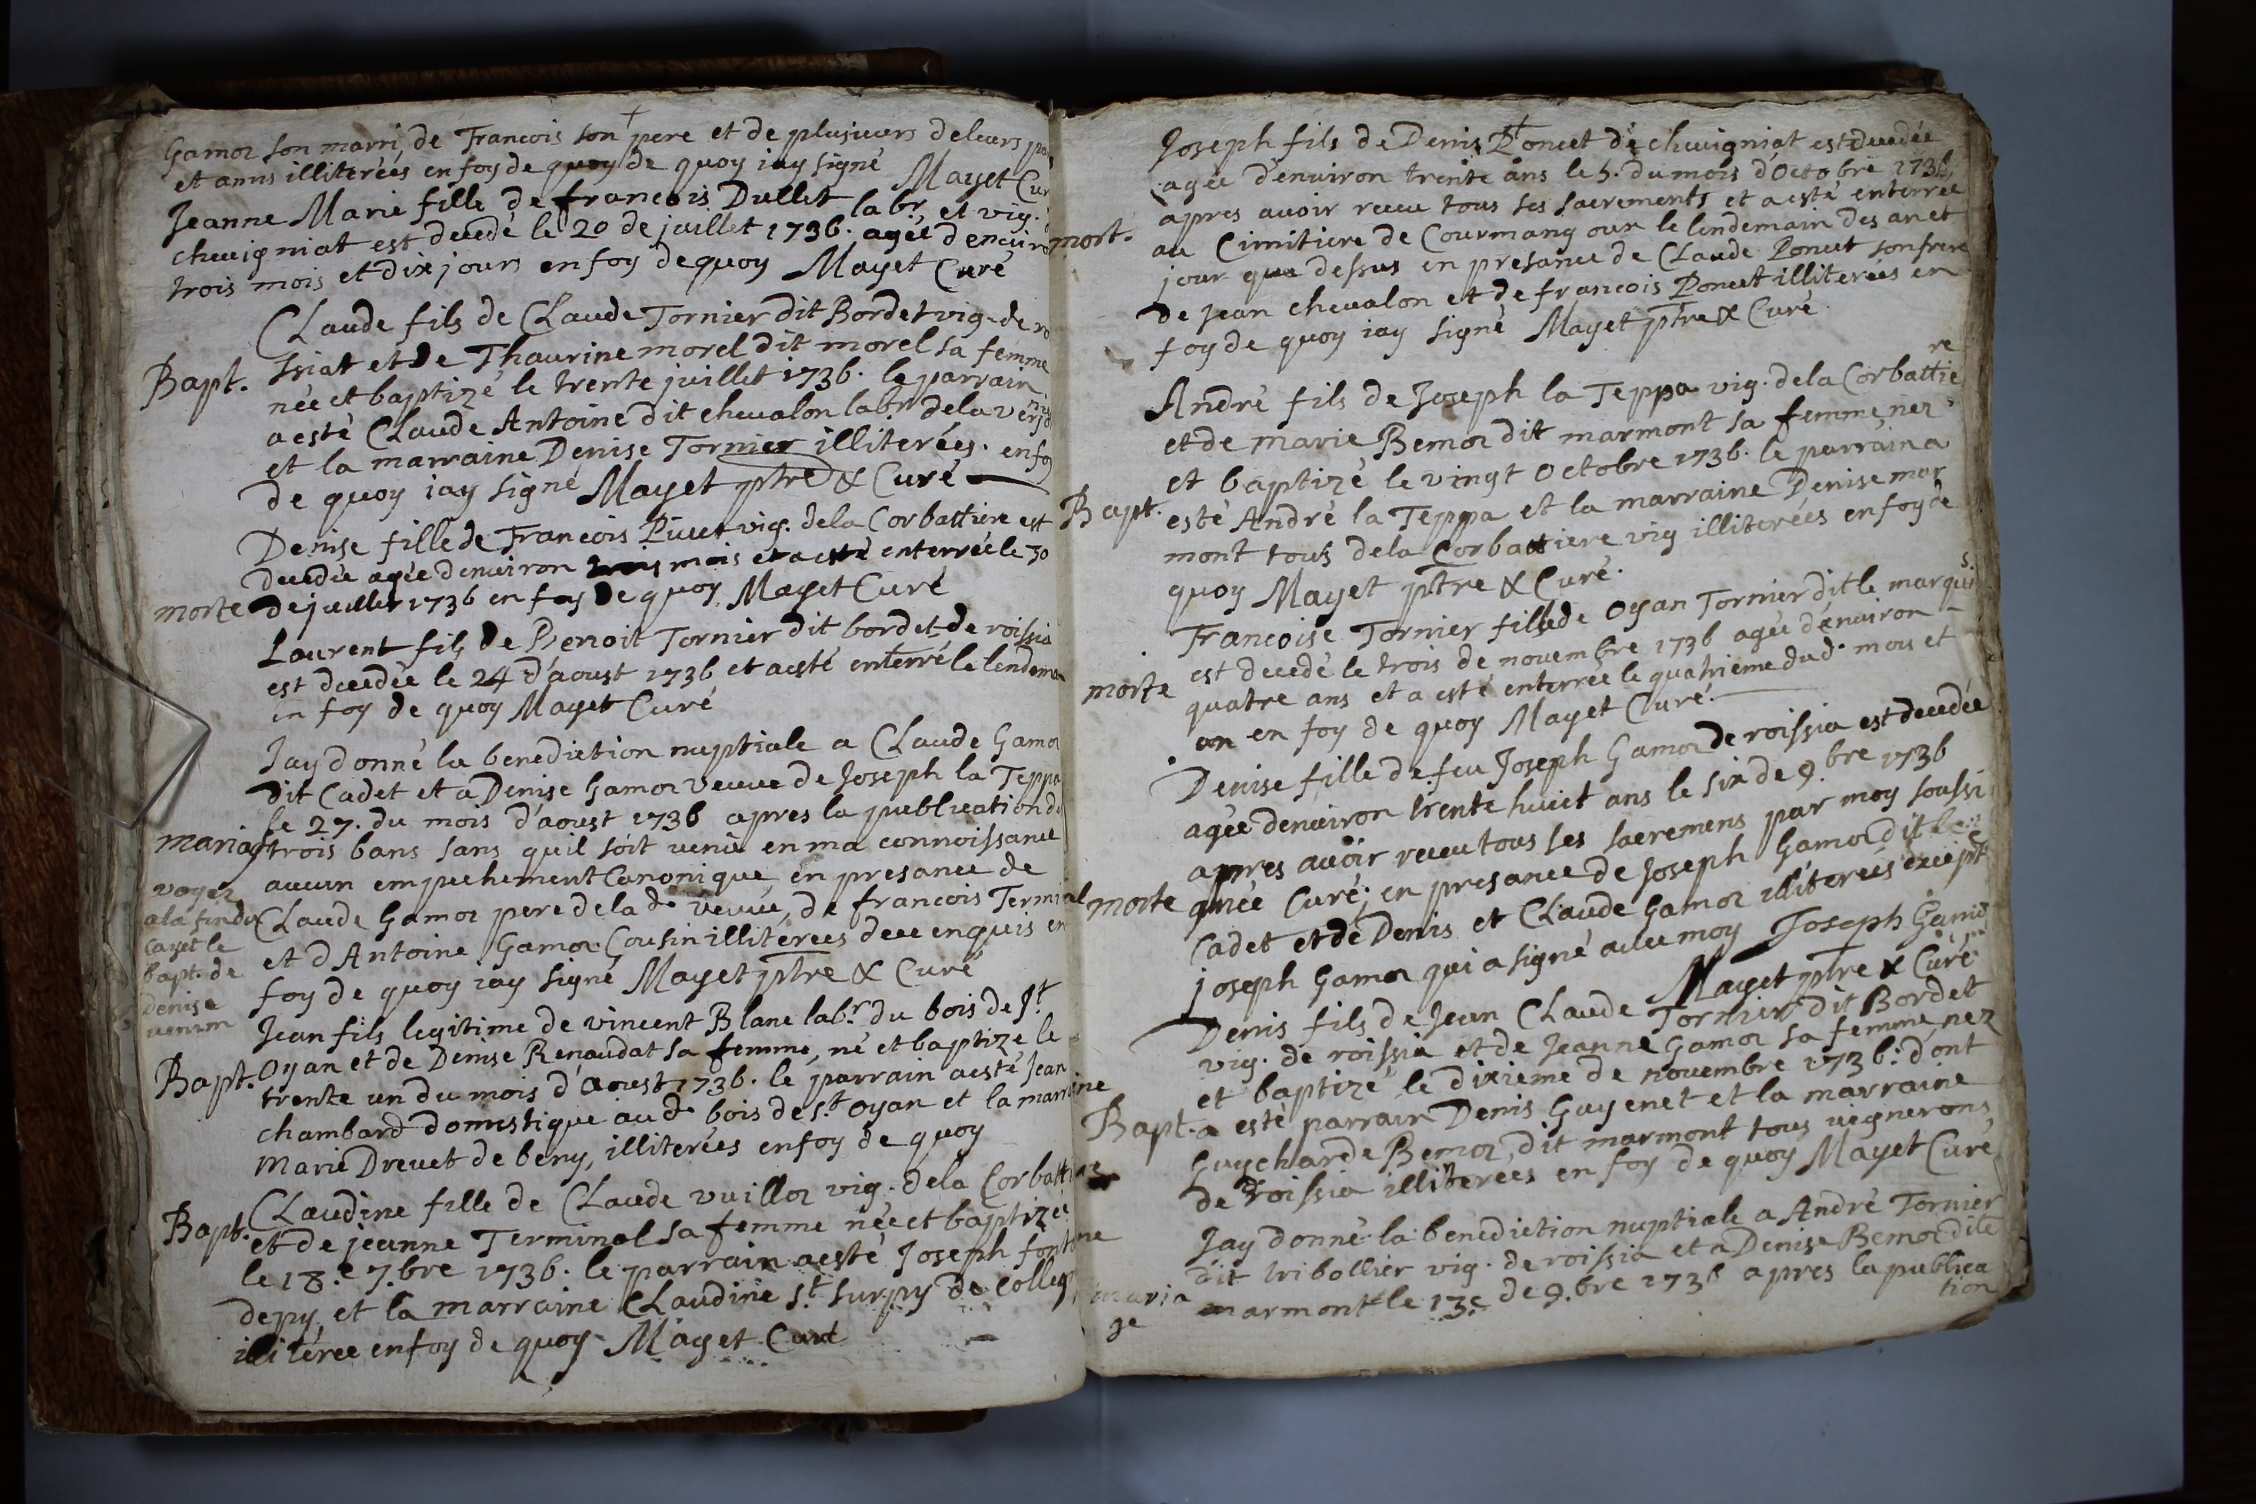 Gamoz son marri, de Francois son pere et de plusieurs de leurs
et amis illiterés en foy de quoy de quoy iay signé Mayet Cur
Jeanne Marie fille de francois Dullet labr. et vig.
cheuigniat est decedé le 20 de juillet 1736. agée denuiro
trois mois et dix jours en foy de quoy Mayet Curé
Claude fils de Claude Tornier dit Bordet vig. de ro
Bapt. ssiat et de Thaurine morel dit morel sa femme
née et baptizé le trente juillet 1736. le parrain
a esté Claude Antoine dit cheualon labr dela
et la marraine Denise Tornier illiterées. en foy
de quoy iay signé Mayet ptre & Curé
Denise fille de Francois Piuet vig. dela Corbattiere est
decedée agée denuiron trois mois et a esté enterrée le 30
morte de juillet 1736 en foy de quoy Mayet Curé
Laurent fils de Benoit Tornier dit bordet de roissia
est decedée le 24 d'aoust 1736 et a esté enterré le lendema
en foy de quoy Mayet Curé
Jay donné la benediction nuptiale a Claude Gamoz
dit Cadet et a Denise Gamoz veuue de Joseph la Teppa
le 27. du mois d'aoust 1736 apres la publication de
mariag trois bans sans quil soit venu en ma connoissance
aucun empechement Canonique en presance de
voyez
a la fin du
Cayet le
bapt. de
Denise
Claude Gamoz pere dela d. veuue, de francois Terminal
et d Antoine Gamoz Cousin illiterees de ce enquis en
foy de quoy iay signé Mayet ptre & Curé
Jean fils legitime de vincent Blanc labr. du bois de St
Bapt. Oyan et de Denise Renaudat sa femme, né et baptizé le
trente un du mois d'Aoust 1736. le parrain a esté Jean
chambard domestique aud. bois de St oyan et la marraine
Marie Dreuet de beny, illiterées en foy de quoy
Claudine fille de Claude vuilloz vig. dela Corbatt
Bapt. et de jeanne Terminal sa femme née et baptizée
le 18.e 7.bre 1736. le parrain a esté Joseph fontane
depy, et la marraine Claudine St surpy de
illiterée en foy de quoy Mayet Curé
Joseph fils de Denis Poncet de cheuigniat est decedée
agée d'enuiron trente ans le 5. du mois d'Octobre 1736,
apres auoir receu tous ses sacrements et a esté enterrée
mort. au Cimitiere de Courmangoux le lendemain des an et
jour que dessus en presance de Claude Poncet son frere
de Jean cheualon et de francois Poncet illiterees en
foy de quoy iay signé Mayet ptre & Curé
André fils de Joseph la Teppa vig. dela Corbattie
re
et de marie Bemoz dit marmont sa femme, nez
et baptizé le vingt Octobre 1736. le parrain a
Bapt. esté André la Teppa et la marraine Denise mar
mont tous dela Corbattiere vig illiterées en foy de
quoy Mayet ptre & Curé.
Francoise Tornier fille de Oyan Tornier dit le marquis
est decedé le trois de nouembre 1736 agée d'enuiron
morte quatre ans et a esté enterrée le quatrieme dud. mois et
an en foy de quoy Mayet Curé.
Denise fille de feu Joseph Gamoz de roissia est decedée
agée denuiron trente huict ans le six de 9.bre 1736
apres auoir receu tous ses sacremens par moy soussi
morte gnée Curé; en presance de Joseph Gamoz dit
Cadet et de Denis et Claude Gamoz illiterees except
joseph Gamoz qui a signé auec moy Joseph Gamoz
Mayet ptre & Curé
Denis fils de Jean Claude Tornier dit Bordet
vig. de roissia et de Jeanne Gamoz sa femme nez
et baptizé le dixieme de nouembre 1736. dont
Bapt. a esté parrain Denis Guyenet et la marraine
Guycharde Bemoz dit marmont tous vignerons
de roissia illiterees en foy de quoy Mayet Curé
Jay donné la benediction nuptiale a André Tornier
dit tribollier vig. de roissia et a Denise Bemoz dite
maria
ge
marmont le 13.e de 9.bre 1736 apres la publica
tion